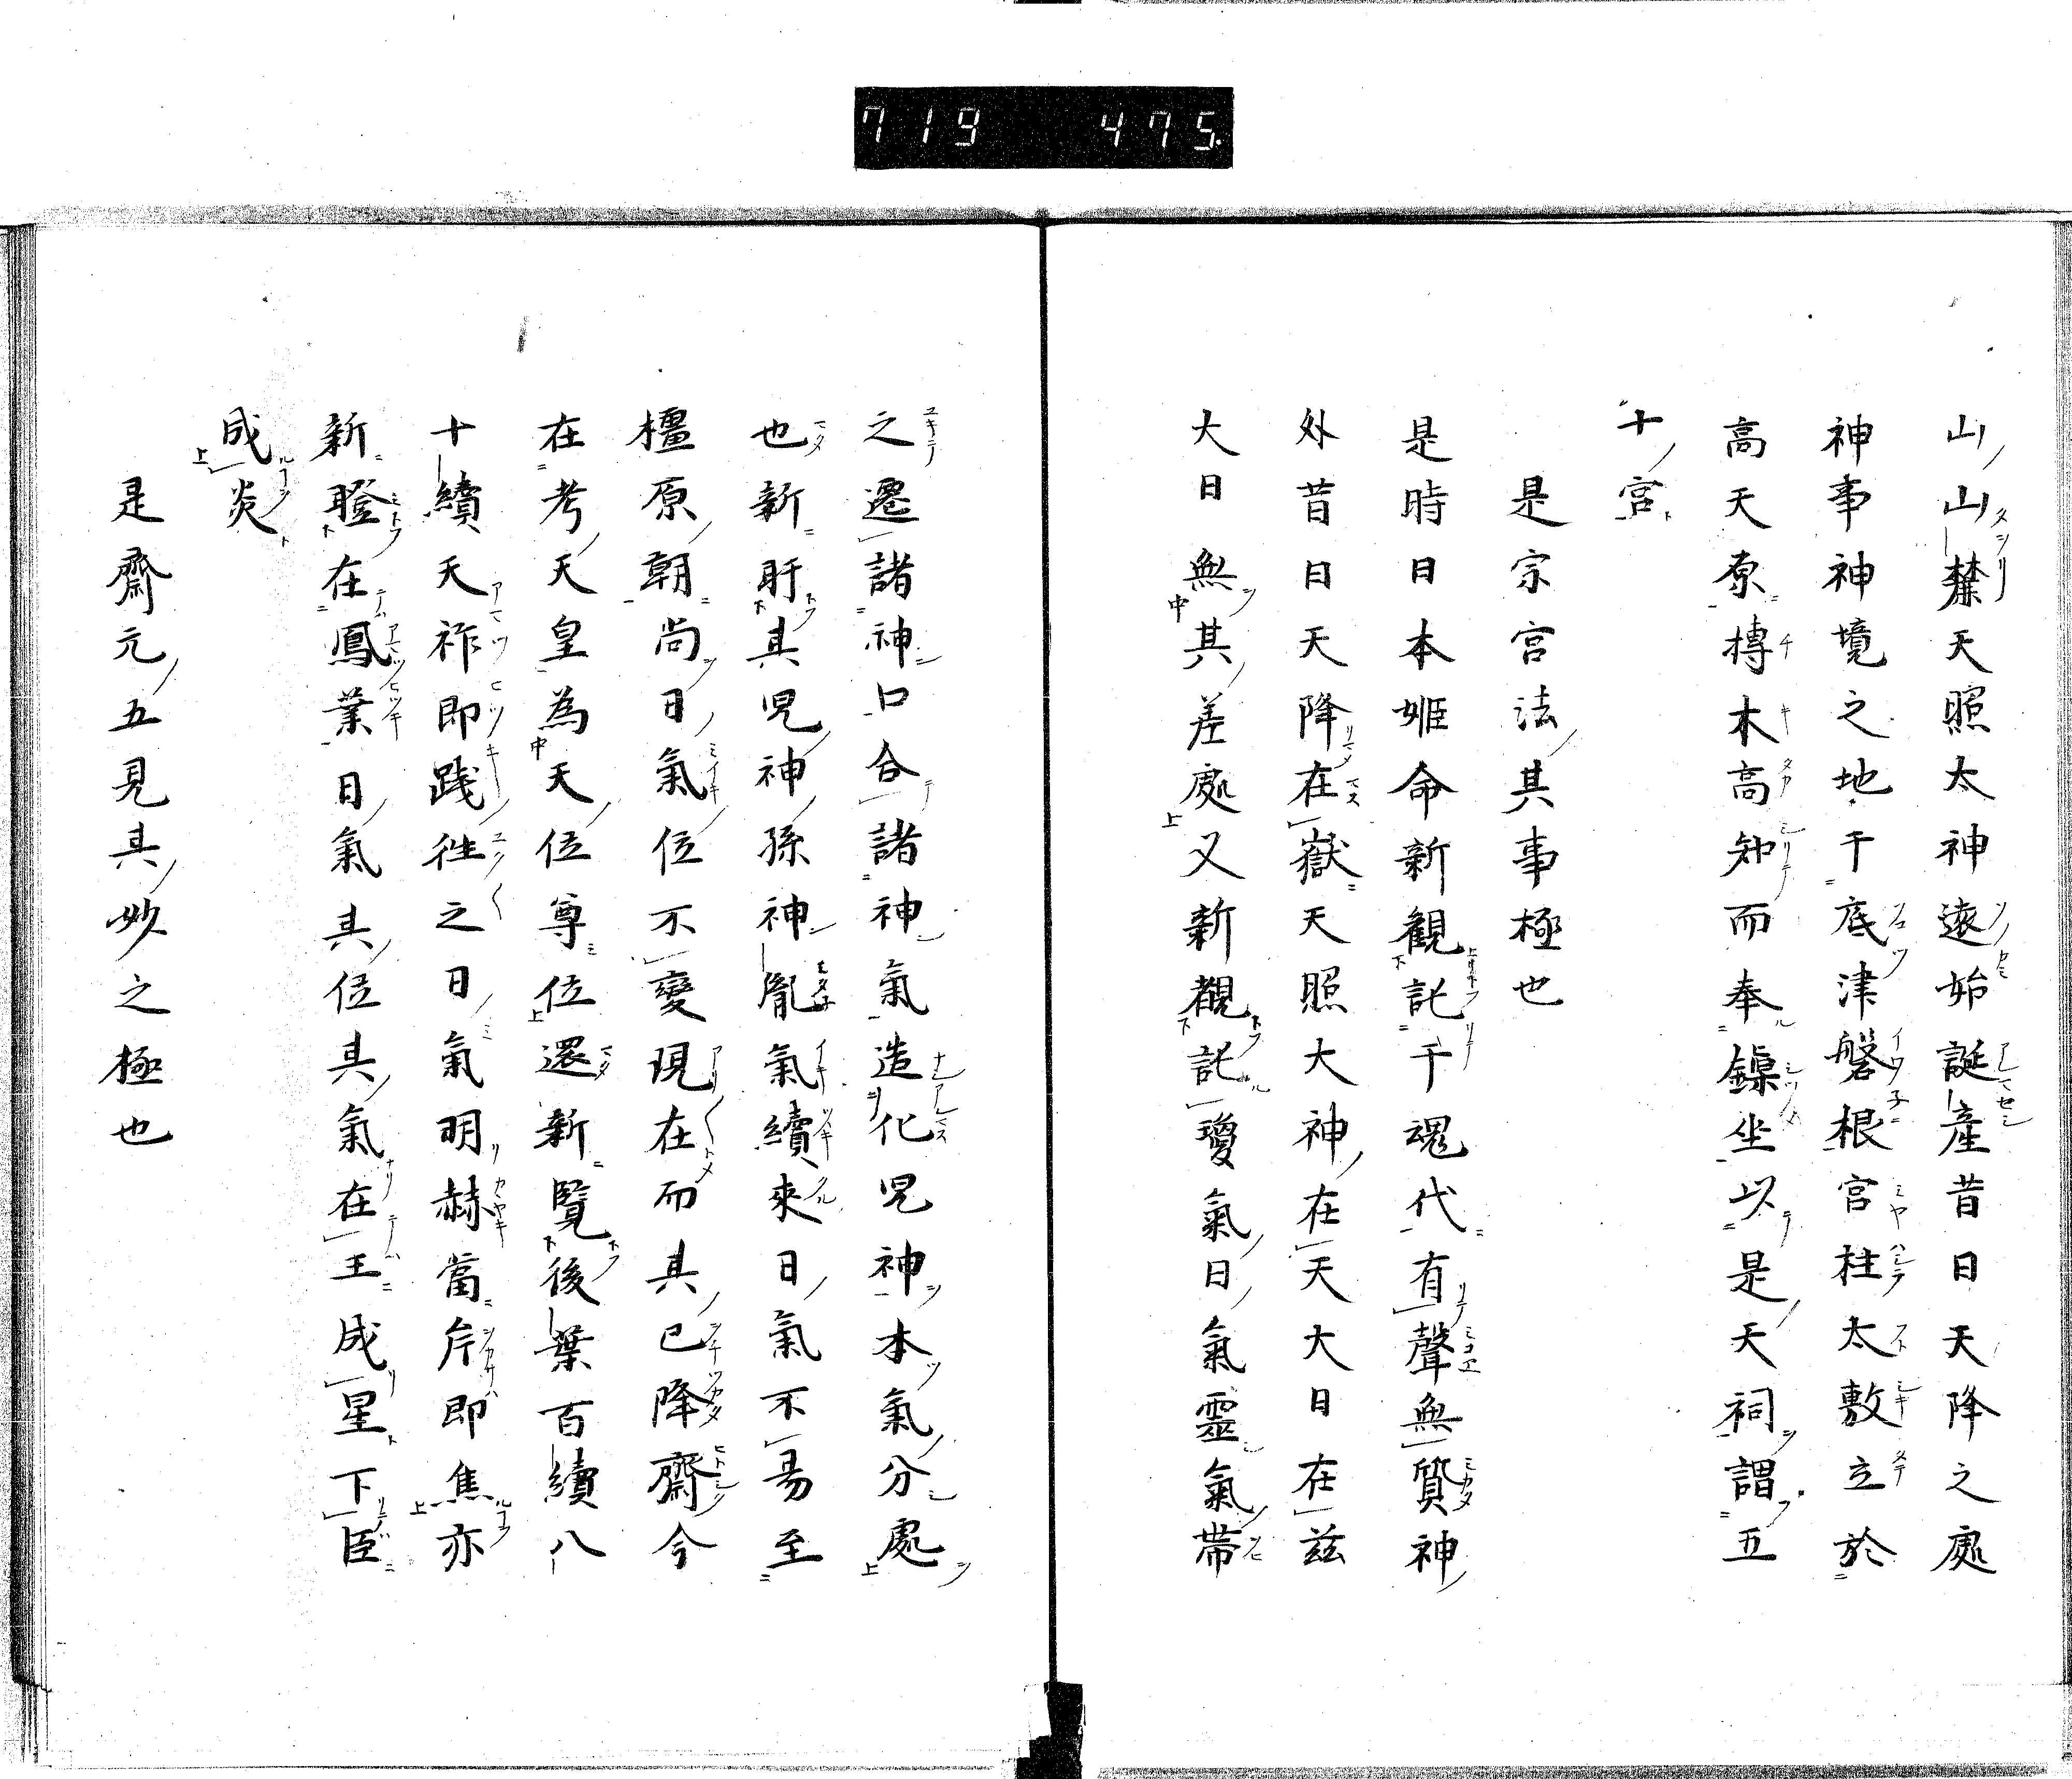 719 475
山山麓天照太神遠始誕產昔日天降之處
神事神境之地于底津磐根宮柱太敷立於
高天原摶木高知而奉鎮坐以是天祠謂五
十宮
是宗宮宮法其事極也
是時日本姬命新観託于魂代有聲無質神
外昔日天降在嶽天照大神在天大日在茲
大日無其差處又新覩託瓊氣日氣靈氣帶
之遷諸神口合諸神氣造化児神本氣分處
也新盱其児神孫神胤氣續來日氣不易至
橿原朝尚日氣位不變現在而其已降齋今
在考天皇為天位尊位還新覧後葉百續八
十續天祚即踐徃之日氣明赫當片即焦亦
新瞪在鳳葉日氣其位其氣在王成星下臣
成炎
是齋元五見其妙之極也